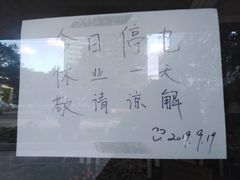 今日停电
休业一天
敬请谅解
2019.9.19